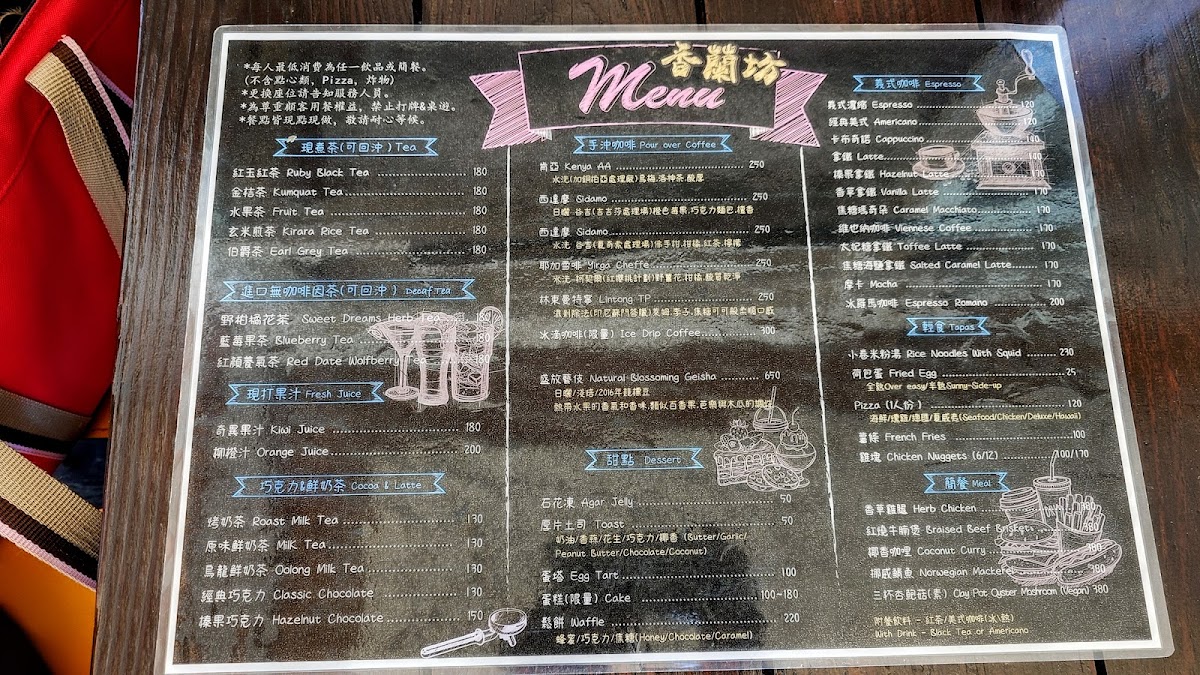 *每人最低消費為任一飲品或簡餐。
(不含點心類, Pizza, 炸物)
*更換座位請告知服務人員。
*為尊重顧客用餐權益, 禁止打牌&桌遊。
*餐點皆現點現做, 敬請耐心等候。
現煮茶(可回沖) Tea
紅玉紅茶 Ruby Black Tea 180
金桔茶 Kumquat Tea 180
水果茶 Fruit Tea 180
玄米煎茶 Kirara Rice Tea 180
伯爵茶 Earl Grey Tea 180
進口無咖啡因茶(可回沖) Decaf Tea
野樹橘花茶 Sweet Dreams Herb Tea 180
藍莓果茶 Blueberry Tea 180
紅顏養氣茶 Red Date Wolfberry Tea 180
現打果汁 Fresh Juice
奇異果汁 Kiwi Juice 180
柳橙汁 Orange Juice 200
巧克力&鮮奶茶 Cocoa & Latte
烤奶茶 Roast Milk Tea 130
原味鮮奶茶 Milk Tea 130
烏龍鮮奶茶 Oolong Milk Tea 130
經典巧克力 Classic Chocolate 130
榛果巧克力 Hazelnut Chocolate 150
Menu 香蘭坊
手沖咖啡 Pour over Coffee
肯亞 Kenya AA 250
水洗(加銅拍亞處理廠)烏梅.洛神茶.酸厚
西達摩 Sidamo 250
日曬 谷吉(吉吉莎處理場)橙色莓果.巧克力麵包.檀香
西達摩 Sidamo 250
水洗 谷吉(夏奇索處理場)佛手柑.柑橘.紅茶.檸檬
耶加雪啡 Yirga Cheffe 250
水洗 柯契爾(紅櫻桃計劃)野薑花.柑橘.酸質乾淨
林東曼特寧 Lintong TP 250
濕剝除法(印尼蘇門答臘)
冰滴咖啡(限量) Ice Drip Coffee 300
盛放藝伎 Natural Blossoming Geisha 650
日曬/淺焙/2016年競標豆
熱帶水果的香氣和香味.類似百香果.芭樂與木瓜的
甜點 Dessert
石花凍 Agar Jelly 50
厚片土司 Toast 50
奶油/香蒜/花生/巧克力/椰香 (Butter/Garlic/
Peanut Butter/Chocolate/Coconut)
蛋塔 Egg Tart 100
蛋糕(限量) Cake 100~180
鬆餅 Waffle 220
蜂蜜/巧克力/焦糖(Honey/Chocolate/Caramel)
義式咖啡 Espresso
義式濃縮 Espresso 120
經典美式 Americano 120
卡布奇諾 Cappuccino 140
拿鐵 Latte 140
榛果拿鐵 Hazelnut Latte 170
香草拿鐵 Vanilla Latte 170
焦糖瑪奇朵 Caramel Macchiato 170
維也納咖啡 Viennese Coffee 170
太妃糖拿鐵 Toffee Latte 170
焦糖海鹽拿鐵 Salted Caramel Latte 170
摩卡 Mocha 170
冰羅馬咖啡 Espresso Romano 200
輕食 Tapas
小卷米粉湯 Rice Noodles With Squid 230
荷包蛋 Fried Egg 25
全熟Over easy/半熟Sunny-Side-up
Pizza (1人份) 120
海鮮/燻雞/總匯/夏威夷(Seafood/Chicken/Deluxe/Hawaii)
薯條 French Fries 100
雞塊 Chicken Nuggets (6/12) 100/170
簡餐 Meal
香草雞腿 Herb Chicken 380
紅燒牛腩煲 Braised Beef Brisket 480
椰香咖哩 Coconut Curry 380
挪威鯖魚 Norwegian Mackerel 380
三杯杏鮑菇(素) Clay Pot Oyster Mushroom (Vegan) 380
附餐飲料 - 紅茶/美式咖啡(冰\熱)
With Drink - Black Tea or Americano